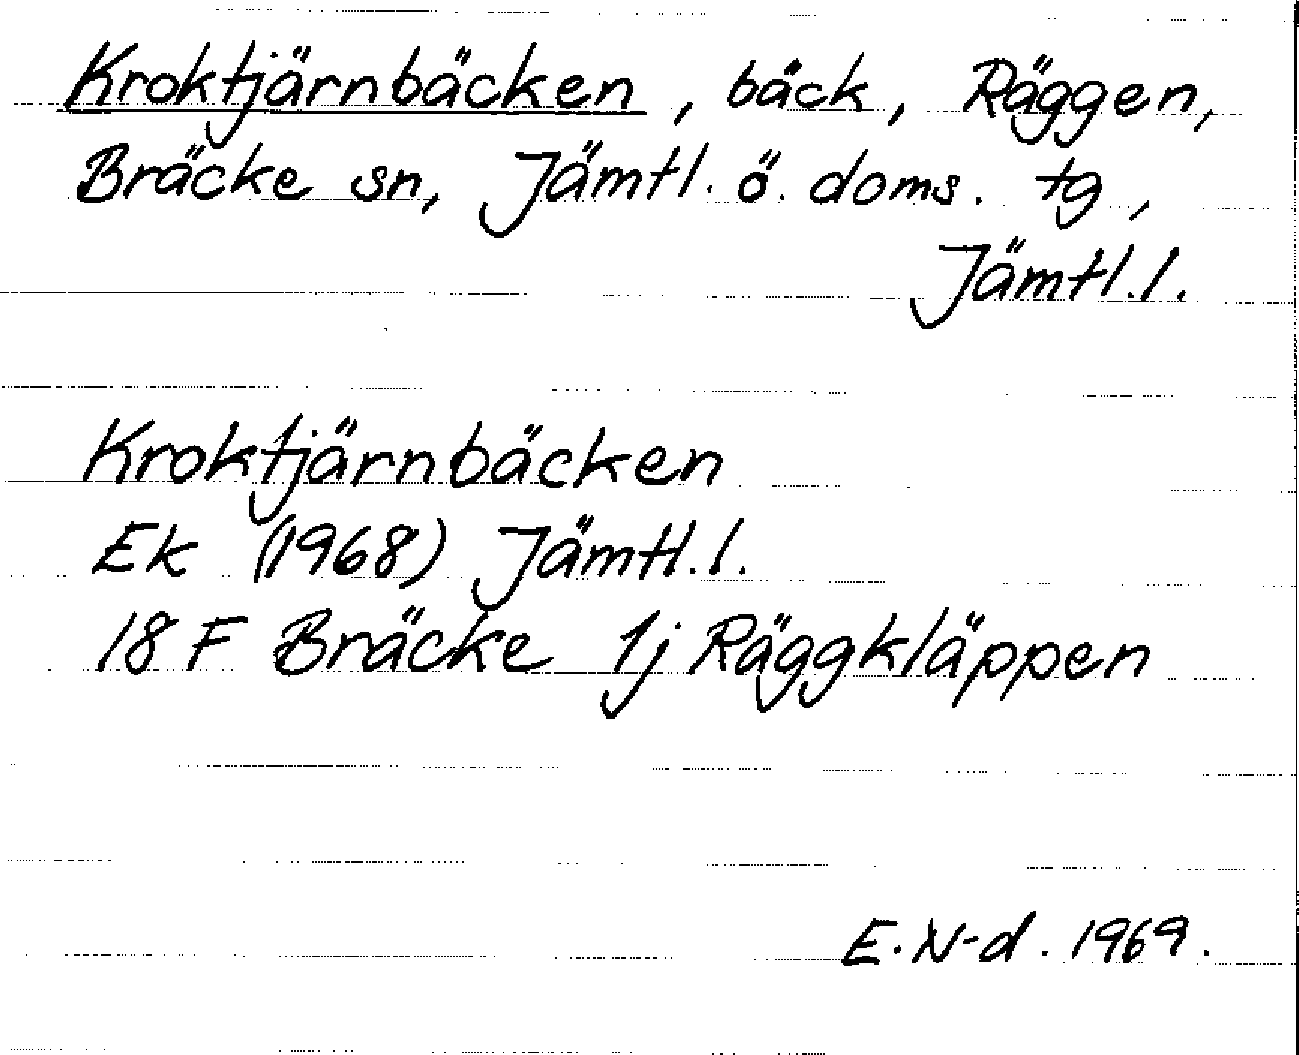 Kroktjärnbäcken, bäck, Räggen,
Bräcke sn, Jämtl. ö. doms. tg,
Jämtl.l.
Kroktjärnbäcken
Ek (1968) Jämtl.l.
18 F Bräcke 1j Räggkläppen
E. N-d. 1969.